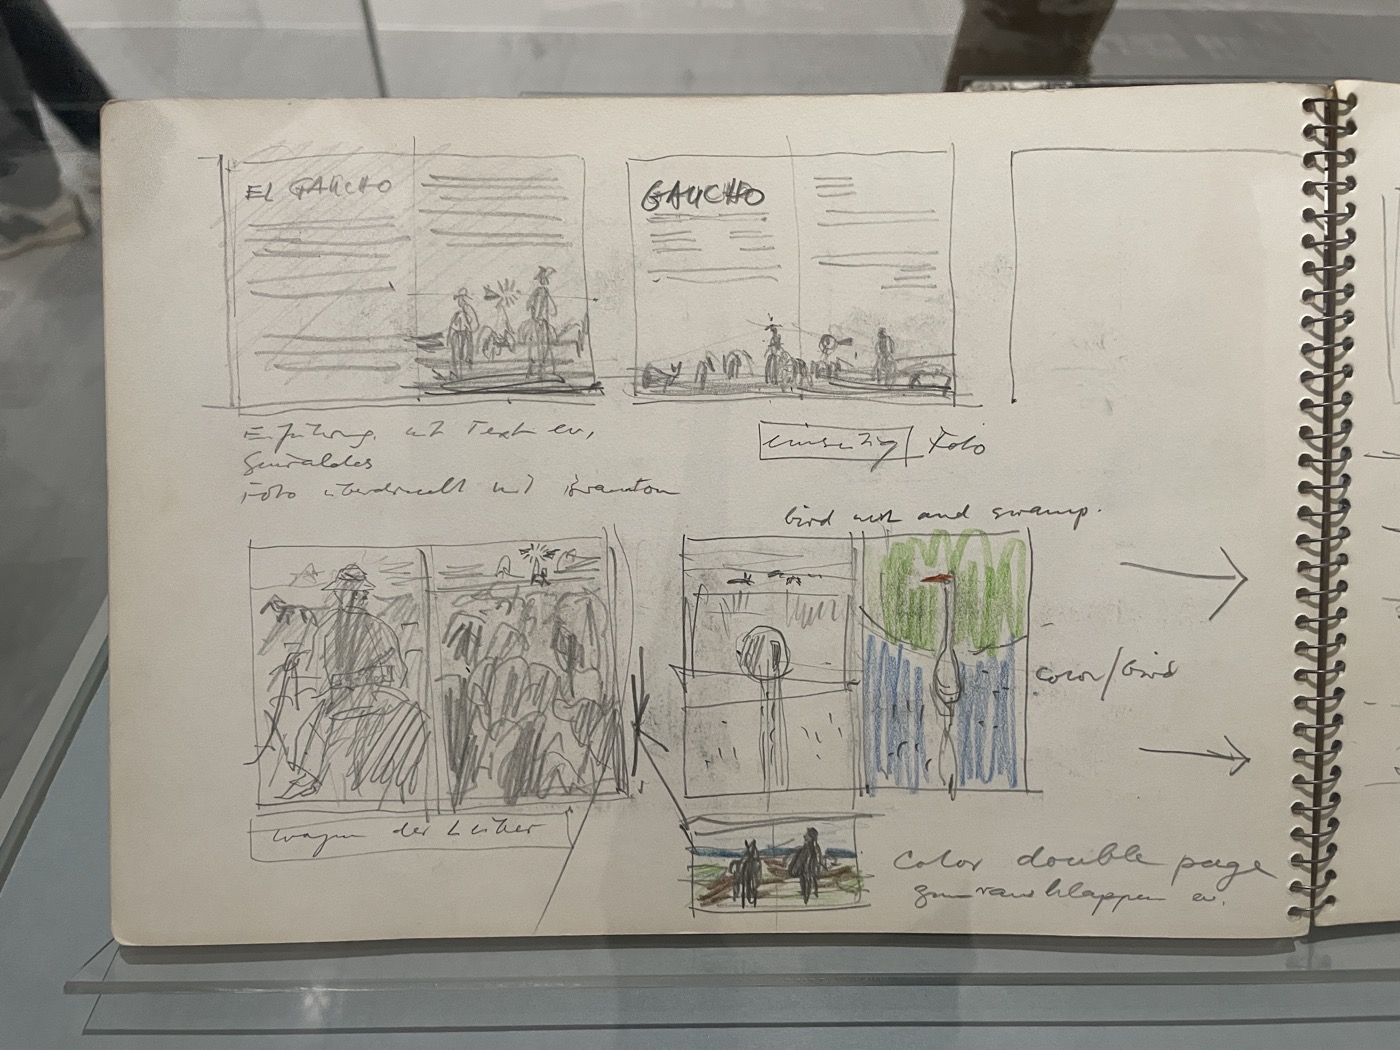 EL GAUCHO
GAUCHO
Einführung mit Text ev.
Guiraldes
Foto überdruckt mit Braunton
einseitig Foto
bird nest and swamp.
color/bird
wegen der Leiber
Color double page
zum rausklappen ev.